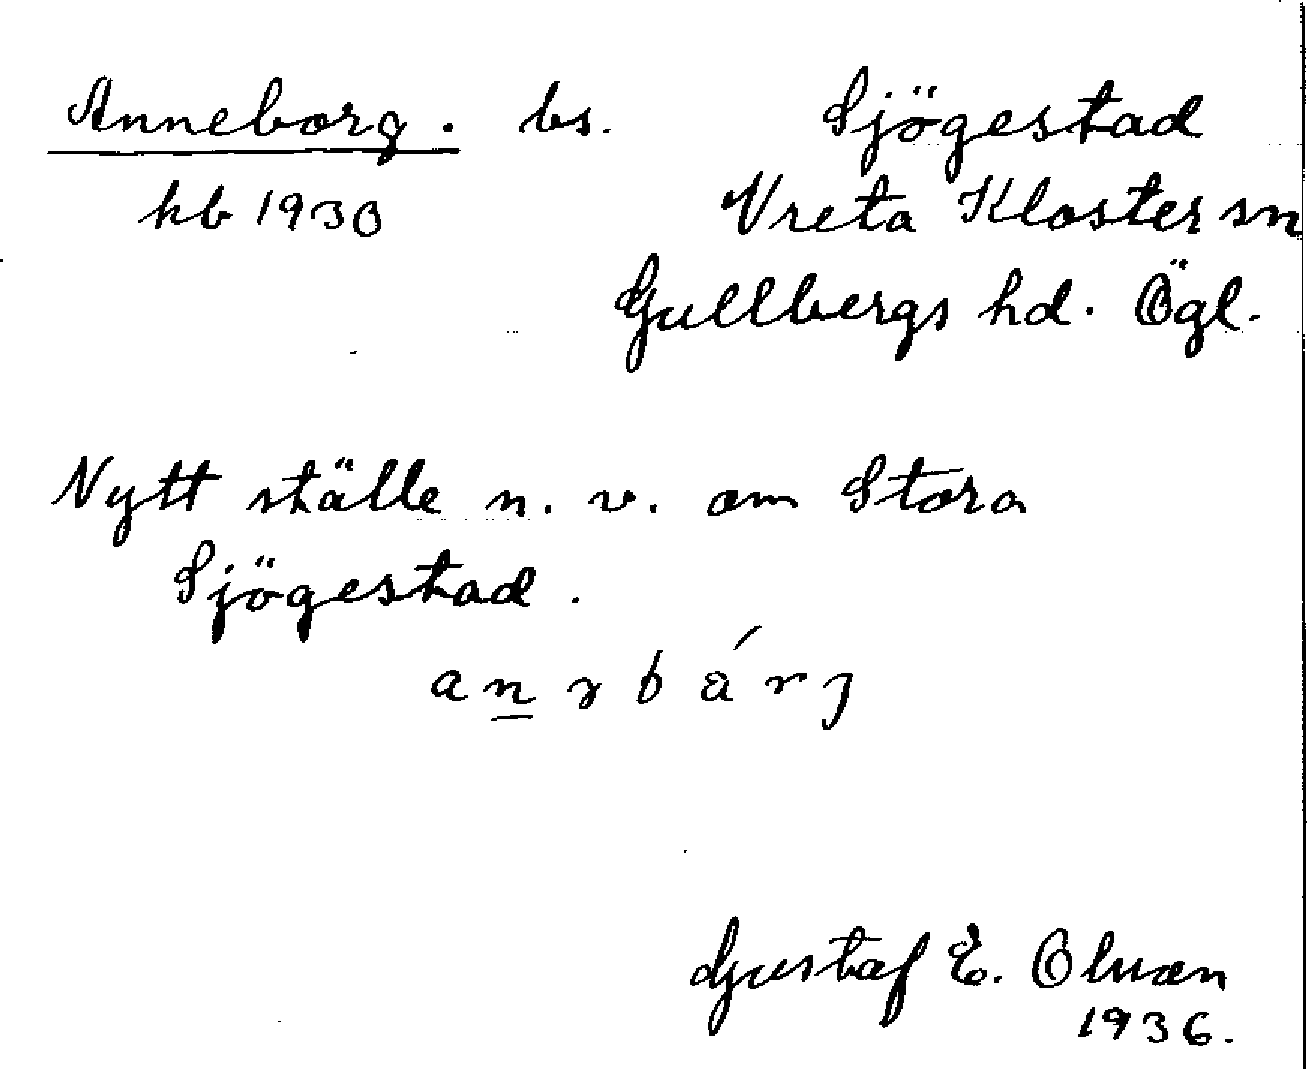 Anneborg. bs. Sjögestad
kb 1930 Vreta Kloster sn
Gullbergs hd. Ögl.
Nytt ställe n. v. om Stora
Sjögestad.
Gustaf E.
1936.